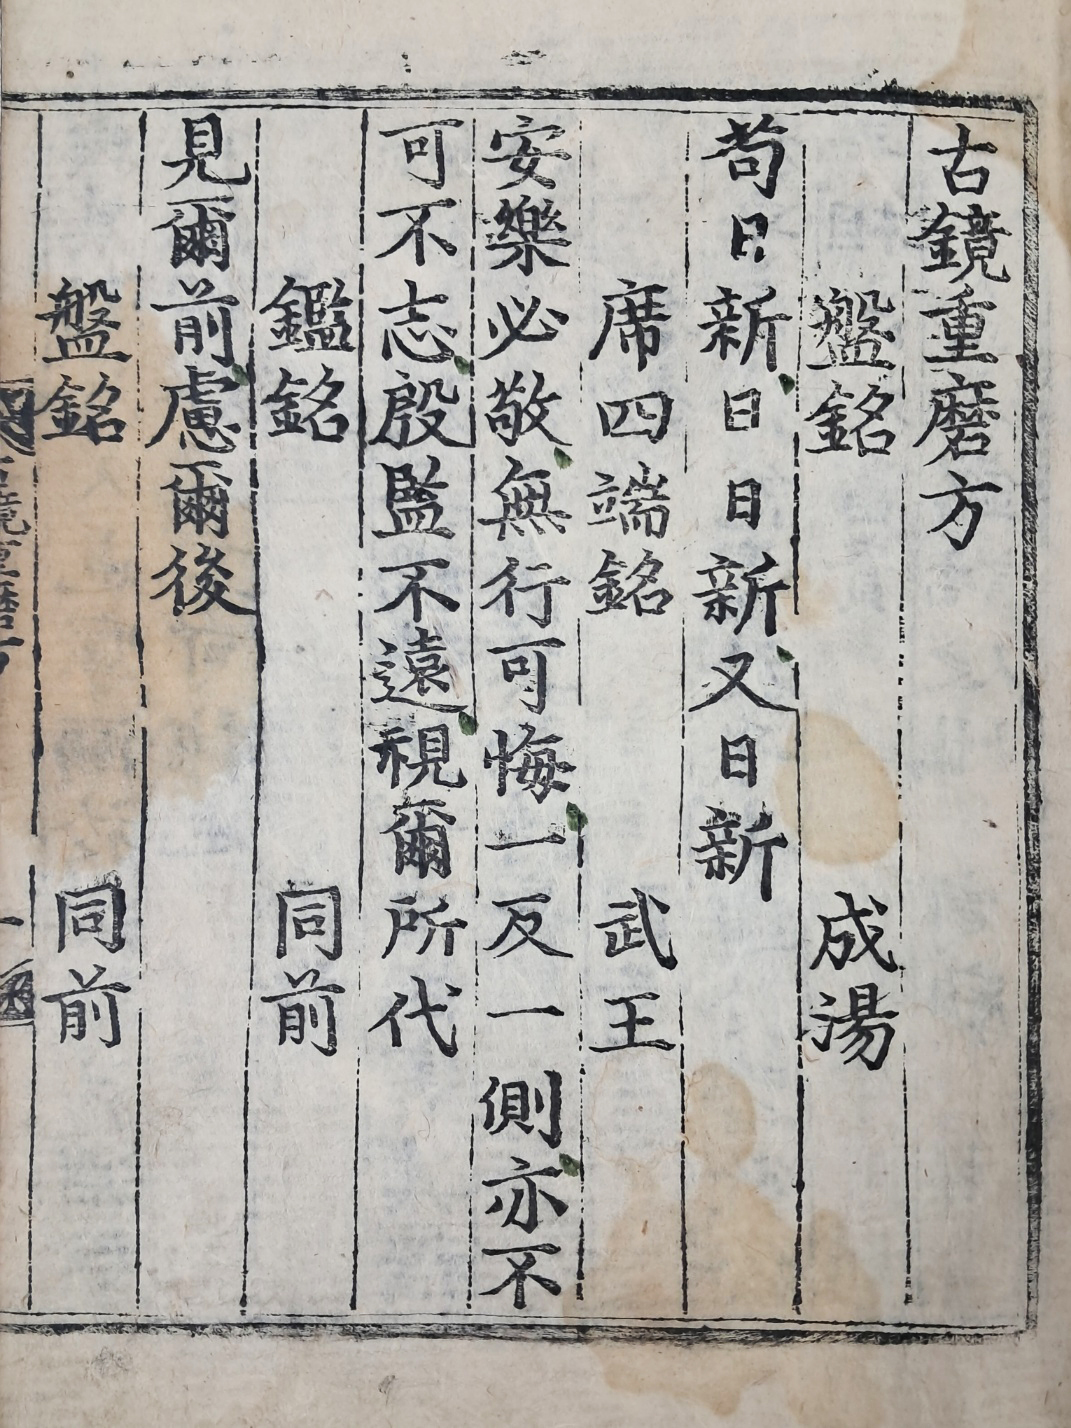 古鏡重磨方
盤銘 成湯
苟日新日日新又日新
席四端銘 武王
安樂必敬無行可悔一反一側亦不
可不志殷監不遠視爾所代
鑑銘 同前
見爾前慮爾後
盤銘 同前
古鏡重磨方 一